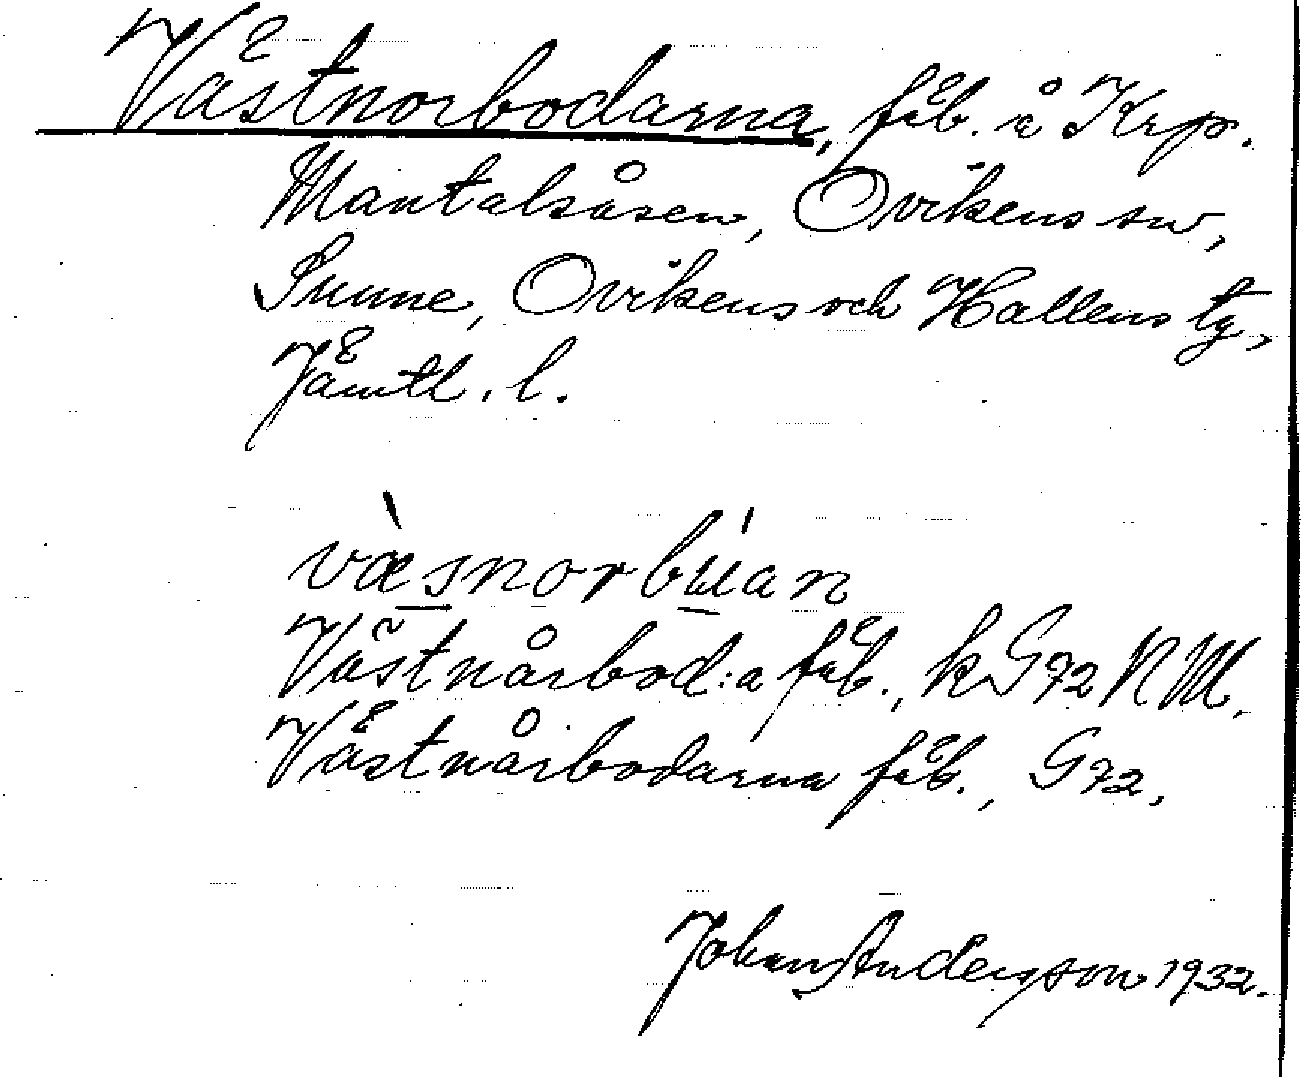 Västnorbodarna, fäb. å Krp.
Mantalsåsen, Ovikens sn,
Sunne, Ovikens och Hallens tg,
Jämtl. l.
væ̀snorbu̍an
Västnårbod:a fäb., kG72 NM.
Västnårbodarna fäb., G72.
Johan Andersson 1932.